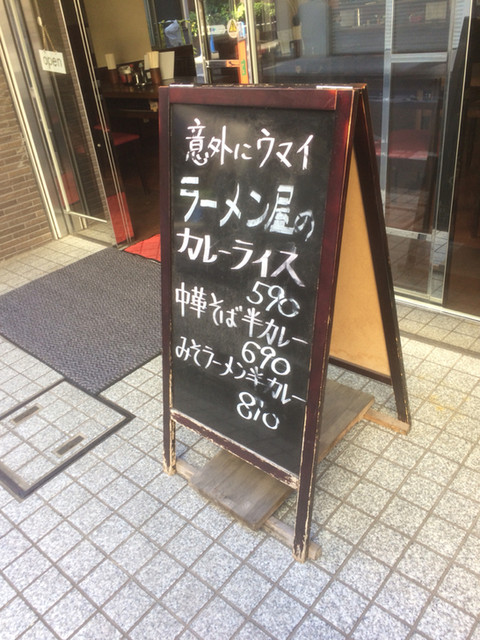 open
意外にウマイ
ラーメン屋の
カレーライス
590
中華そば半カレー
690
みそラーメン半カレー
810